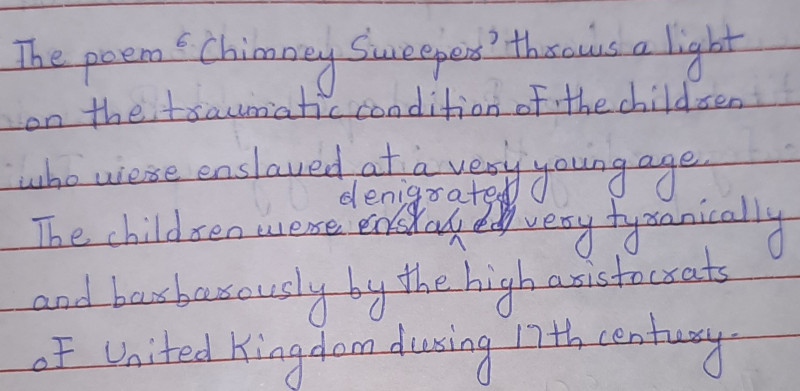 The poem 'Chimney Sweeper' throws a light
on the traumatic condition of the children
who were enslaved at a very young age.
denigrated
The children were enslaved very tyranically
and barbarously by the high aristocrats
of United Kingdom during 17th century.